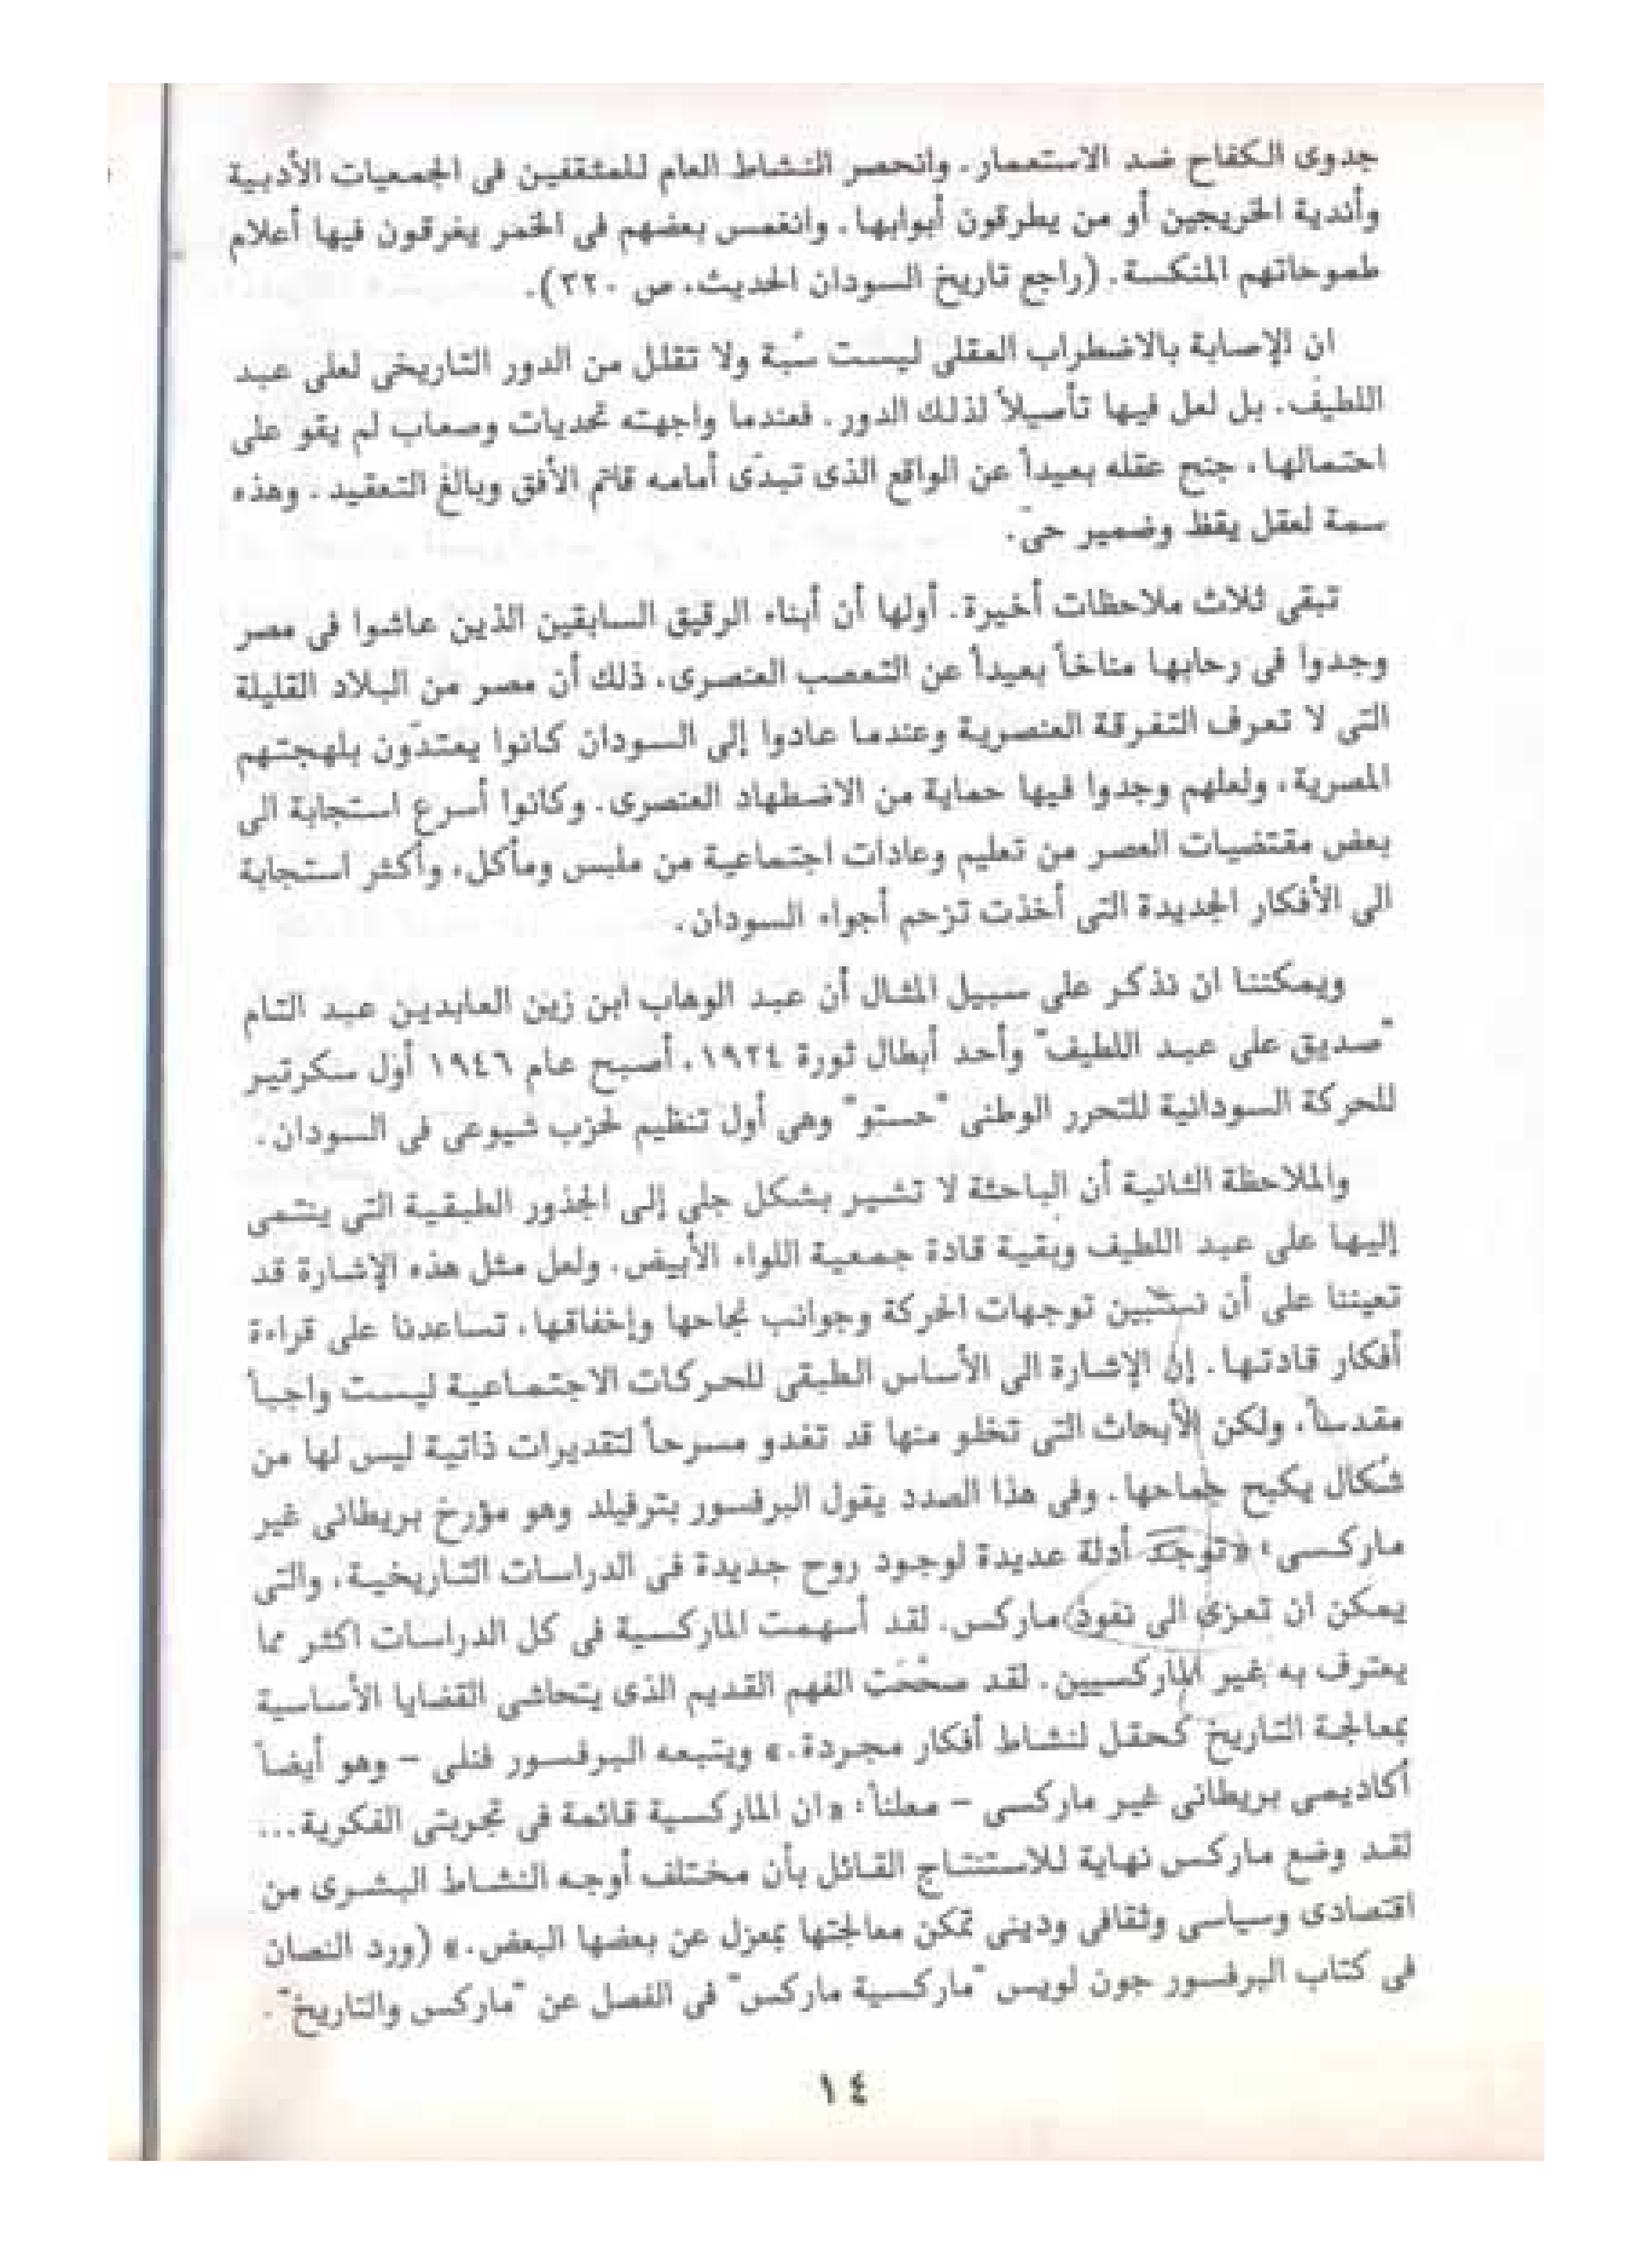 جدوى الكفاح ضد الاستعمار. وانحصر النشاط العام للمثقفين فى الجمعيات الأدبية
وأندية الخريجين أو من يطرقون أبوابها. وانغمس بعضهم فى الخمر يغرقون فيها أعلام
طموحاتهم المنكسة. (راجع تاريخ السودان الحديث، ص ٣٢٠).
ان الإصابة بالاضطراب العقلى ليست سُبة ولا تقلل من الدور التاريخى لعلى عبد
اللطيف. بل لعل فيها تأصيلاً لذلك الدور. فعندما واجهته تحديات وصعاب لم يقو على
احتمالها، جنح عقله بعيداً عن الواقع الذى تبدّى أمامه قاتم الأفق وبالغ التعقيد. وهذه
سمة لعقل يقظ وضمير حىّ.
تبقى ثلاث ملاحظات أخيرة. أولها أن أبناء الرقيق السابقين الذين عاشوا فى مصر
وجدوا فى رحابها مناخاً بعيداً عن التعصب العنصرى، ذلك أن مصر من البلاد القليلة
التى لا تعرف التفرقة العنصرية وعندما عادوا إلى السودان كانوا يعتدّون بلهجتهم
المصرية، ولعلهم وجدوا فيها حماية من الاضطهاد العنصرى. وكانوا أسرع استجابة الى
بعض مقتضيات العصر من تعليم وعادات اجتماعية من ملبس ومأكل، وأكثر استجابة
الى الأفكار الجديدة التى أخذت تزحم أجواء السودان.
ويمكننا ان نذكر على سبيل المثال أن عبد الوهاب ابن زين العابدين عبد التام
"صديق على عبد اللطيف" وأحد أبطال ثورة ١٩٢٤، أصبح عام ١٩٤٦ أول سكرتير
للحركة السودانية للتحرر الوطنى "حستو" وهى أول تنظيم لحزب شيوعى فى السودان.
والملاحظة الثانية أن الباحثة لا تشير بشكل جلى إلى الجذور الطبقية التى ينتمى
إليها على عبد اللطيف وبقية قادة جمعية اللواء الأبيض. ولعل مثل هذه الإشارة قد
تعيننا على أن نستبين توجهات الحركة وجوانب نجاحها وإخفاقها، تساعدنا على قراءة
أفكار قادتها. إن الإشارة الى الأساس الطبقى للحركات الاجتماعية ليست واجباً
مقدساً، ولكن الأبحاث التى تخلو منها قد تغدو مسرحاً لتقديرات ذاتية ليس لها من
شكال يكبح جماحها. وفى هذا الصدد يقول البرفسور بترفيلد وهو مؤرخ بريطانى غير
ماركسى: «توجد أدلة عديدة لوجود روح جديدة فى الدراسات التاريخية، والتى
يمكن ان تعزى الى نفوذ ماركس. لقد أسهمت الماركسية فى كل الدراسات اكثر مما
يعترف به غير الماركسيين. لقد صحّحَت الفهم القديم الذى يتحاشى القضايا الأساسية
بمعالجة التاريخ كحقل لنشاط أفكار مجردة.» ويتبعه البرفسور فنلى – وهو أيضاً
أكاديمى بريطانى غير ماركسى – معلناً: «ان الماركسية قائمة فى تجربتى الفكرية...
لقد وضع ماركس نهاية للاستنتاج القائل بأن مختلف أوجه النشاط البشرى من
اقتصادى وسياسى وثقافى ودينى تمكن معالجتها بمعزل عن بعضها البعض.» (ورد النصان
فى كتاب البرفسور جون لويس "ماركسية ماركس" فى الفصل عن "ماركس والتاريخ".
١٤